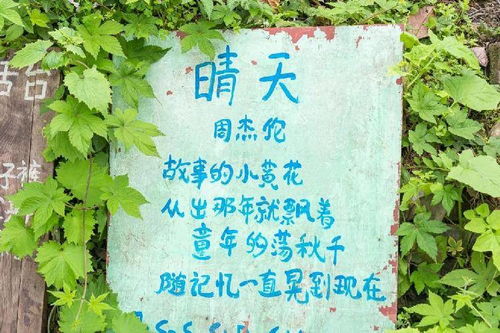 晴天
周杰伦
故事的小黄花
从出那年就飘着
童年的荡秋千
随记忆一直晃到现在